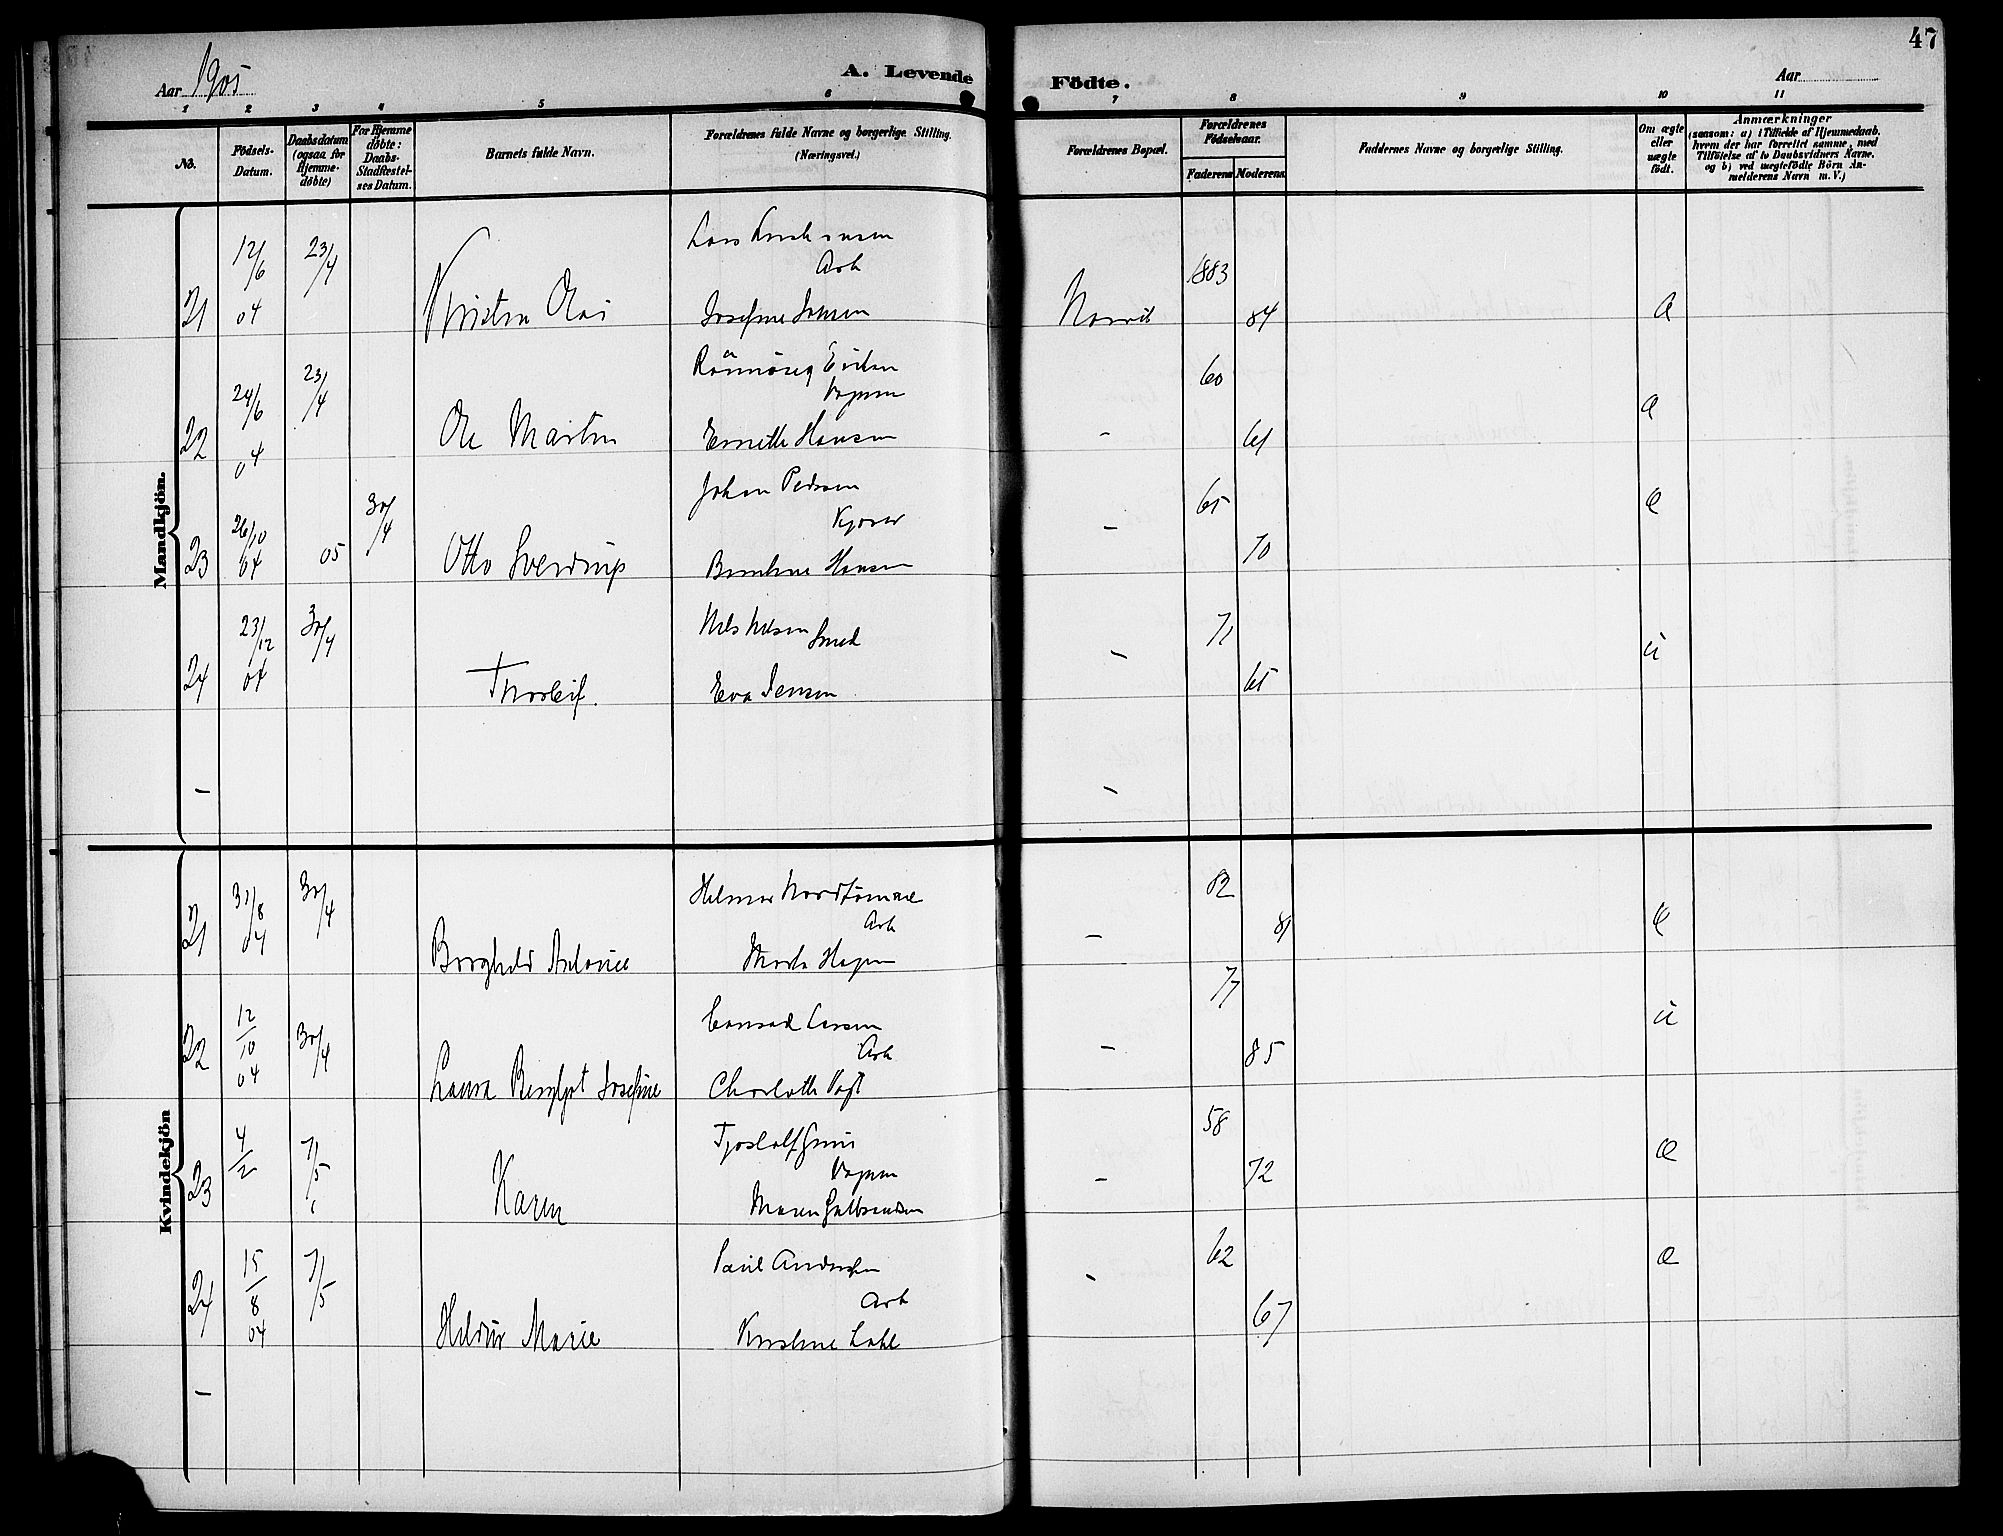 47
Aar 1905
A. Levende Födte.
Aar
1 2 3 4 5 6 7 8 9 10 11
No.
Födsels-Datum.
Daabsdatum (ogsaa for Hjemmedöbte)
For Hjemmedöbte: Daabs-Stadfæstelses Datum.
Barnets fulde Navn.
Forældrenes fulde Navne og borgerlige Stilling.
(Næringsvei.)
Forældrenes Bopæl.
Forældrenes Födselsaar.
Faderens Moderens
Faddernes Navne og borgerlige Stilling.
Om ægte eller uægte födt.
Anmærkninger
(saasom: a) i Tilfælde af Hjemmedaab, hvem der har forrettet samme, med Tilföielse af to Daabsvidners Navne, og b) ved uægtefödte Börn Anmelderens Navn m. V.)
Mandkjön.
21 12/6 04 23/4
Arb
1883
Josefine Jensen
Narvik 84
22 24/6 04 23/4
60
Ole Martin
Hansen
- 61
23 26/10 04 05 30/4
Johan Pedersen
65
Otto Sverdrup
Hansen
- 70
24 23/12 04 30/4
Nils Nilsen Smed
71
Thorleif.
Eva Jensen
- 65 u
- -
Kvindekjön
21 31/8 04 30/4
Arb
82
Borghild Antonie
- 81
22 12/10 04 30/4
Conrad Larsen
77
Arb
Laura Bergljot Josefine
Charlotte Vogt
- 85 u
23 4/2 7/5
58
Karen
Maren Gulbrandsen
- 72 æ
24 15/8 04 7/5
Paul Andersen
62
Arb
Hildur Marie
Kristine Lahl
- 67 æ
-